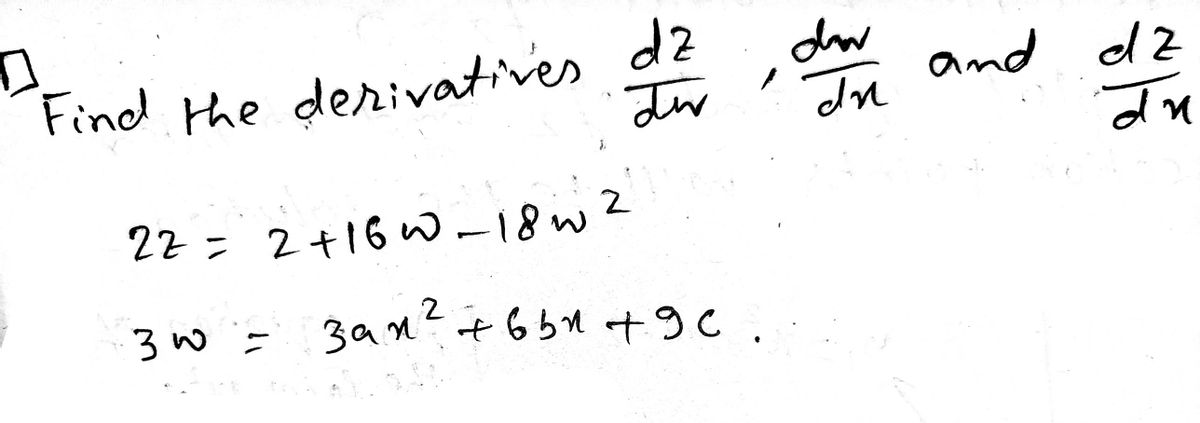 Find the derivatives dz/dw, dw/dx and dz/dx
2z = 2+16w-18w²
3w = 3ax² + 6bx + 9c.